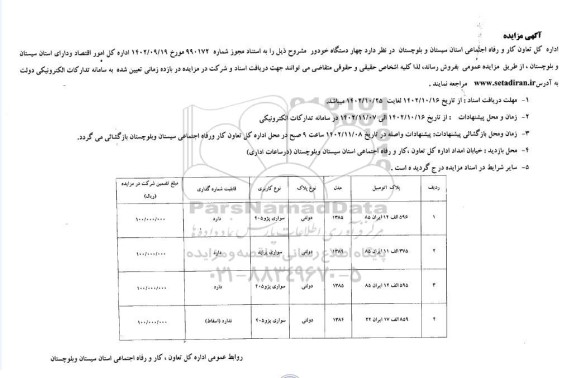 آگهی مزایده
اداره کل تعاون کار و رفاه اجتماعی استان سیستان و بلوچستان در نظر دارد چهار دستگاه خودور مشروح ذیل را به استناد مجوز شماره ۹۹۰۱۷۲ مورخ ۱۴۰۲/۰۹/۱۹ اداره کل امور اقتصاد ودارای استان سیستان
و بلوچستان ، از طریق مزایده عمومی بفروش رساند، لذا کلیه اشخاص حقیقی و حقوقی متقاضی می توانند جهت دریافت اسناد و شرکت در مزایده در بازده زمانی تعیین شده به سامانه تدارکات الکترونیکی دولت
به آدرس www.setadiran.ir مراجعه نمایند .
۱- مهلت دریافت اسناد : از تاریخ ۱۴۰۲/۱۰/۱۶ لغایت ۱۴۰۲/۱۰/۲۵ میباشد.
۲- زمان و محل پیشنهادات : از تاریخ ۱۴۰۲/۱۰/۲۶ الی ۱۴۰۲/۱۱/۰۷ در سامانه تدارکات الکترونیکی
۳- زمان ومحل بازگشائی پیشنهادات: پیشنهادات واصله در تاریخ ۱۴۰۲/۱۱/۰۸ ساعت ۹ صبح در محل اداره کل تعاون کار ورفاه اجتماعی سیستان وبلوچستان بازگشائی می گردد.
۴- محل بازدید : خیابان امداد اداره کل تعاون ،کار و رفاه اجتماعی استان سیستان وبلوچستان (درساعات اداری)
۵- سایر شرایط در اسناد مزایده درج گردید ه است .
ردیف پلاک اتومبیل مدل نوع پلاک نوع کاربری قابلیت شماره گذاری مبلغ تضمین شرکت در مزایده (ریال)
۱ ۵۹۵ الف ۱۲ ایران ۸۵ ۱۳۸۵ دولتی سواری پژو۴۰۵ دارد ۱۰۰/۰۰۰/۰۰۰
۲ ۳۷۵ الف ۱۱ ایران ۸۵ ۱۳۸۹ دولتی سواری دارد ۱۰۰/۰۰۰/۰۰۰
۳ ۵۹۵ الف ۱۲ ایران ۸۵ ۱۳۸۵ دولتی سواری پژو۴۰۵ دارد ۱۰۰/۰۰۰/۰۰۰
۴ ۸۵۹ الف ۱۷ ایران ۲۲ ۱۳۸۶ دولتی سواری پژو۴۰۵ ندارد (اسقاط) ۱۰۰/۰۰۰/۰۰۰
ParsNamadData
پایگاه اطلاع رسانی مناقصه و مزایده
۰۲۱-۸۸۳۴۹۶۷۰-۵
روابط عمومی اداره کل تعاون ، کار و رفاه اجتماعی استان سیستان وبلوچستان